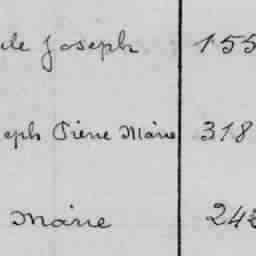 de Joseph 155
eph Pierre Marie 318
Marie 242